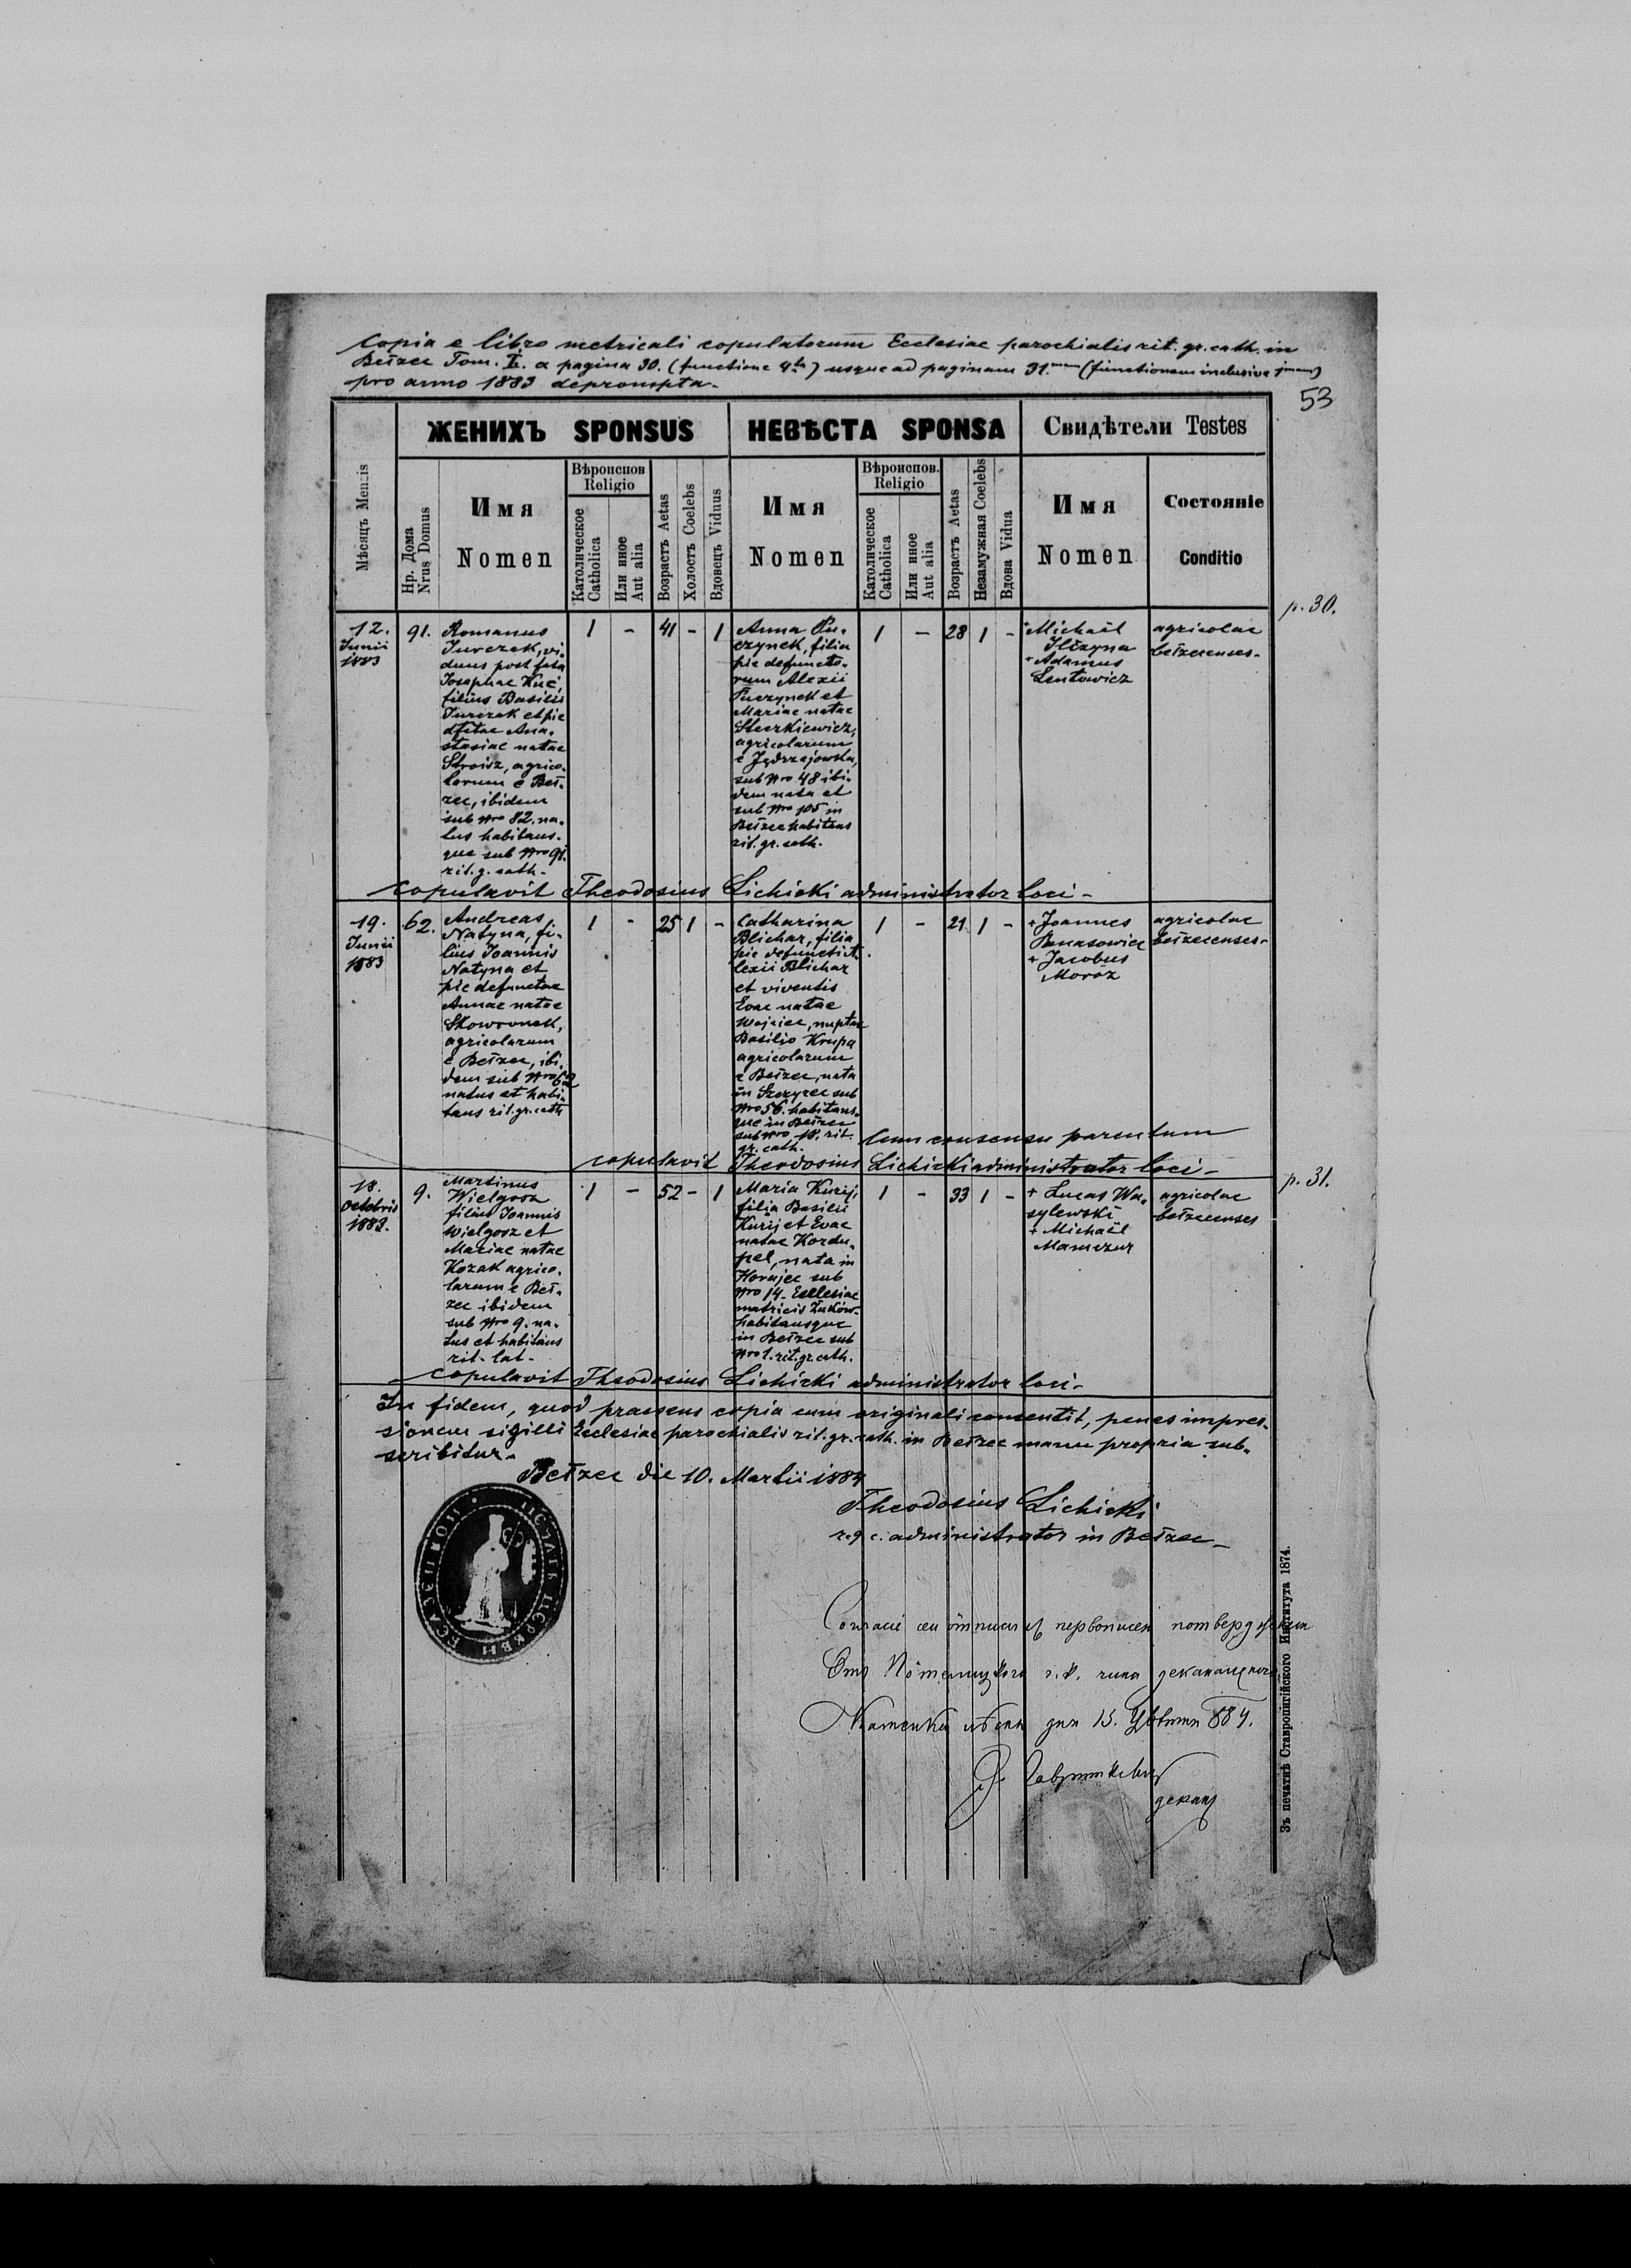 Copia e libro metricali copulatorum Ecclesiae parochialis rit. gr. cath. in
Bełzec Tom. I. a pagina 30. (functione 4ta) usque ad paginam 31.mam (functionem inclusive
pro anno 1883 deprompta.
53
ЖЕНИХЪ SPONSUS
НЕВѢСТА SPONSA
Свидѣтели Testes
Мѣсяцъ Mensis
Нр. Дома
Nrus Domus
Имя
Nomen
Вѣроиспов
Religio
Католическое
Catholica
Или иное
Aut alia
Возрастъ Aetas
Холостъ Coelebs
Вдовецъ Viduus
Имя
Nomen
Вѣроиспов.
Religio
Католическое
Catholica
Или иное
Aut alia
Возрастъ Aetas
Незамужная Coelebs
Вдова Vidua
Имя
Nomen
Состояніе
Conditio
p. 30.
12.
Junii
1883
91.
Romanus
Jurczak, vi-
duus post fata
Josephae Kuć,
filius Basilii
Jurczak et pie
dfctae Ana-
stasiae natae
Stroisz, agrico-
larum e Beł-
zec, ibidem
sub Nro 82. na-
tus habitans-
que sub Nro 91.
rit. g. cath.
1 - 41 - 1
Anna Pu-
czynek, filia
pie defuncto-
rum Alexii
Puczynek et
Mariae natae
Steczkiewicz,
agricolarum
e Jędrzejówka,
sub Nro 48 ibi-
dem nata et
sub Nro 105 in
Bełzec habitans
rit. gr. cath.
1 - 28 1 -
+ Michaël
Ilczyna
+ Adamus
Lentowicz
agricolae
bełzecenses-
Copulavit Theodosius Lichicki administrator loci-
19.
Junii
1883
62.
Andreas
Natyna, fi-
lius Joannis
Natyna et
pie defunctae
Annae natae
Skowronek,
agricolarum
e Bełzec, ibi-
dem sub Nro 62
natus et habi-
tans rit. gr. cath
1 - 25 1 -
Catharina
Blichar, filia
pie defuncti A-
lexii Blichar
et viventis
Evae natae
Wojciec, nuptae
Basilio Krupa
agricolarum
e Bełzec, nata
in Szczyrec sub
Nro 56. habitans-
que in Bełzec
sub Nro 18. rit.
gr. cath.
1 - 21 1 -
+ Joannes
Banasowicz
+ Jacobus
Moroz
agricolae
bełzecenses-
Cum consensu parentum
copulavit Theodosius Lichicki administrator loci-
p. 31.
18.
Octobris
1883.
9.
Martinus
Wielgosz
filius Joannis
Wielgosz et
Mariae natae
Kozak agrico-
larum e Beł-
zec ibidem
sub Nro 9. na-
tus et habitans
rit. lat.
1 - 52 - 1
Maria Kurij,
filia Basilii
Kurij et Evae
natae Kordu-
pel, nata in
Horajec sub
Nro 14. Ecclesiae
matricis Żuków-
habitansque
in Bełzec sub
Nro 1. rit. gr. cath.
1 - 33 1 -
+ Lucas Wa-
sylewski
+ Michaël
Mamczur
agricolae
bełzecenses
Copulavit Theodosius Lichicki administrator loci-
In fidem, quod praesens copia cum originali consentit, penes impres-
sionem sigilli Ecclesiae parochialis rit. gr. cath. in Bełzec manu propria sub-
scribitur.
Bełzec die 10. Martii 1884
Theodosius Lichicki
r. g. c. administrator in Bełzec-
дня 15. 884.
деканъ
Зъ печатнѣ Ставропигійского Института 1874.